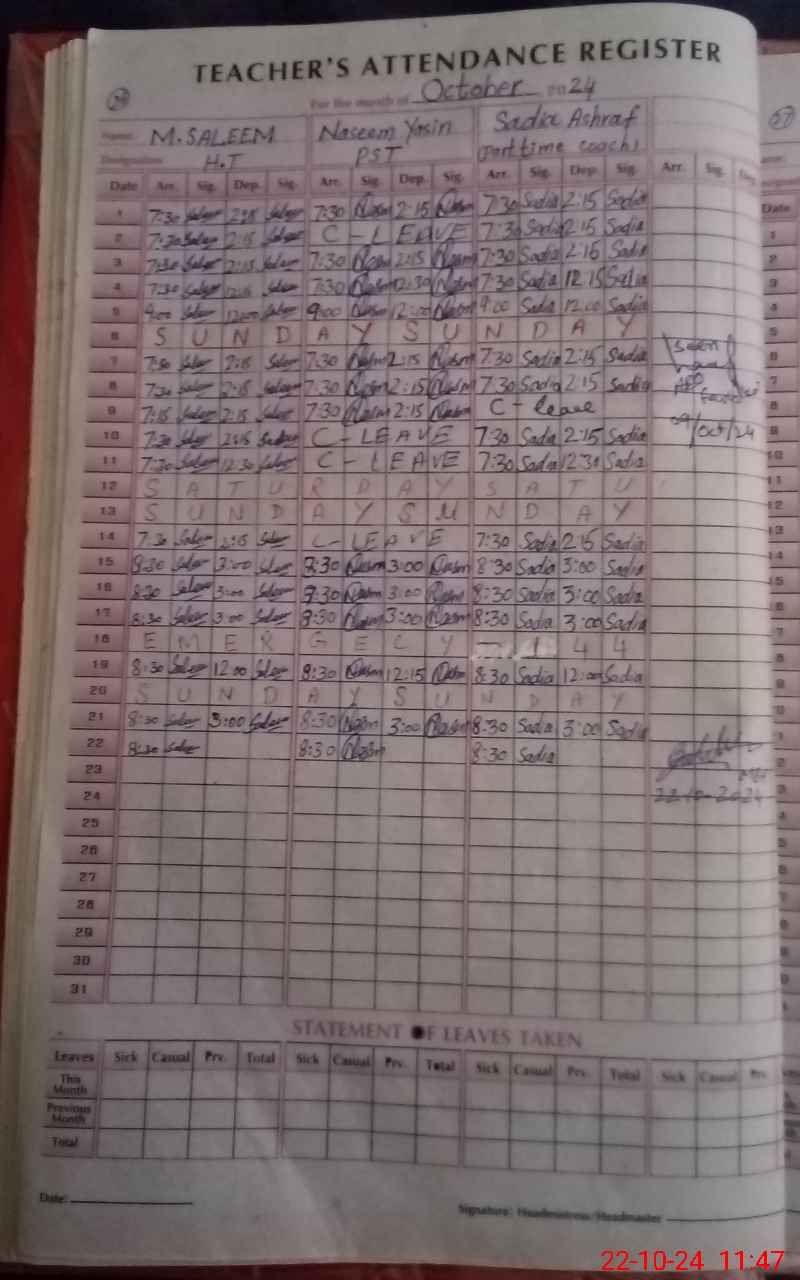 TEACHER'S ATTENDANCE REGISTER
For the month of October 2024
Name: M. SALEEM Naseem Yasin Sadia Ashraf
Designation H.T PST (part time coach)
Date Arr. Sig. Dep. Sig. Arr. Sig. Dep. Sig. Arr. Sig. Dep. Sig. Arr. Sig. Dep
1 7:30 Saleem 2:15 Saleem 7:30 2:15 7:30 Sadia 2:15 Sadia
2 7:30 Saleem 2:15 Saleem C - LEAVE 7:30 Sadia 2:15 Sadia
3 7:30 Saleem 2:15 Saleem 7:30 2:15 7:30 Sadia 2:15 Sadia
4 7:30 Saleem 12:15 Saleem 7:30 12:30 7:30 Sadia 12:15 Sadia
5 9:00 Saleem 12:00 Saleem 9:00 12:00 9:00 Sadia 12:00 Sadia
6 S U N D A Y S U N D A Y
7 7:30 Saleem 2:15 Saleem 7:30 2:15 7:30 Sadia 2:15 Sadia
8 7:30 Saleem 2:15 Saleem 7:30 2:15 7:30 Sadia 2:15 Sadia
9 7:15 Saleem 2:15 Saleem 7:30 2:15 C - leave
10 7:30 Saleem 2:15 C - LEAVE 7:30 Sadia 2:15 Sadia
11 7:30 Saleem 12:30 Saleem C - LEAVE 7:30 Sadia 12:30 Sadia
12 S A T U R D A Y S A T U
13 S U N D A Y S U N D A Y
14 7:30 Saleem 2:15 Saleem C - LEAVE 7:30 Sadia 2:15 Sadia
15 8:30 Saleem 3:00 Saleem 8:30 3:00 8:30 Sadia 3:00 Sadia
16 8:30 Saleem 3:00 Saleem 8:30 3:00 8:30 Sadia 3:00 Sadia
17 8:30 Saleem 3:00 Saleem 8:30 3:00 8:30 Sadia 3:00 Sadia
18 E M E R G E C Y - 1 4 4
19 8:30 Saleem 12:00 Saleem 8:30 12:15 8:30 Sadia 12:00 Sadia
20 S U N D A Y S U N D A Y
21 8:30 Saleem 3:00 Saleem 8:30 3:00 8:30 Sadia 3:00 Sadia
22 8:30 Saleem 8:30 8:30 Sadia
23
24
25
26
27
28
29
30
31
Seen
09/oct/24
22-10-2024
STATEMENT OF LEAVES TAKEN
Leaves Sick Casual Prv. Total Sick Casual Prv. Total Sick Casual Prv. Total Sick Casual Prv.
This Month
Previous Month
Total
Date:
Signature: Headmistress/Headmaster
22-10-24 11:47